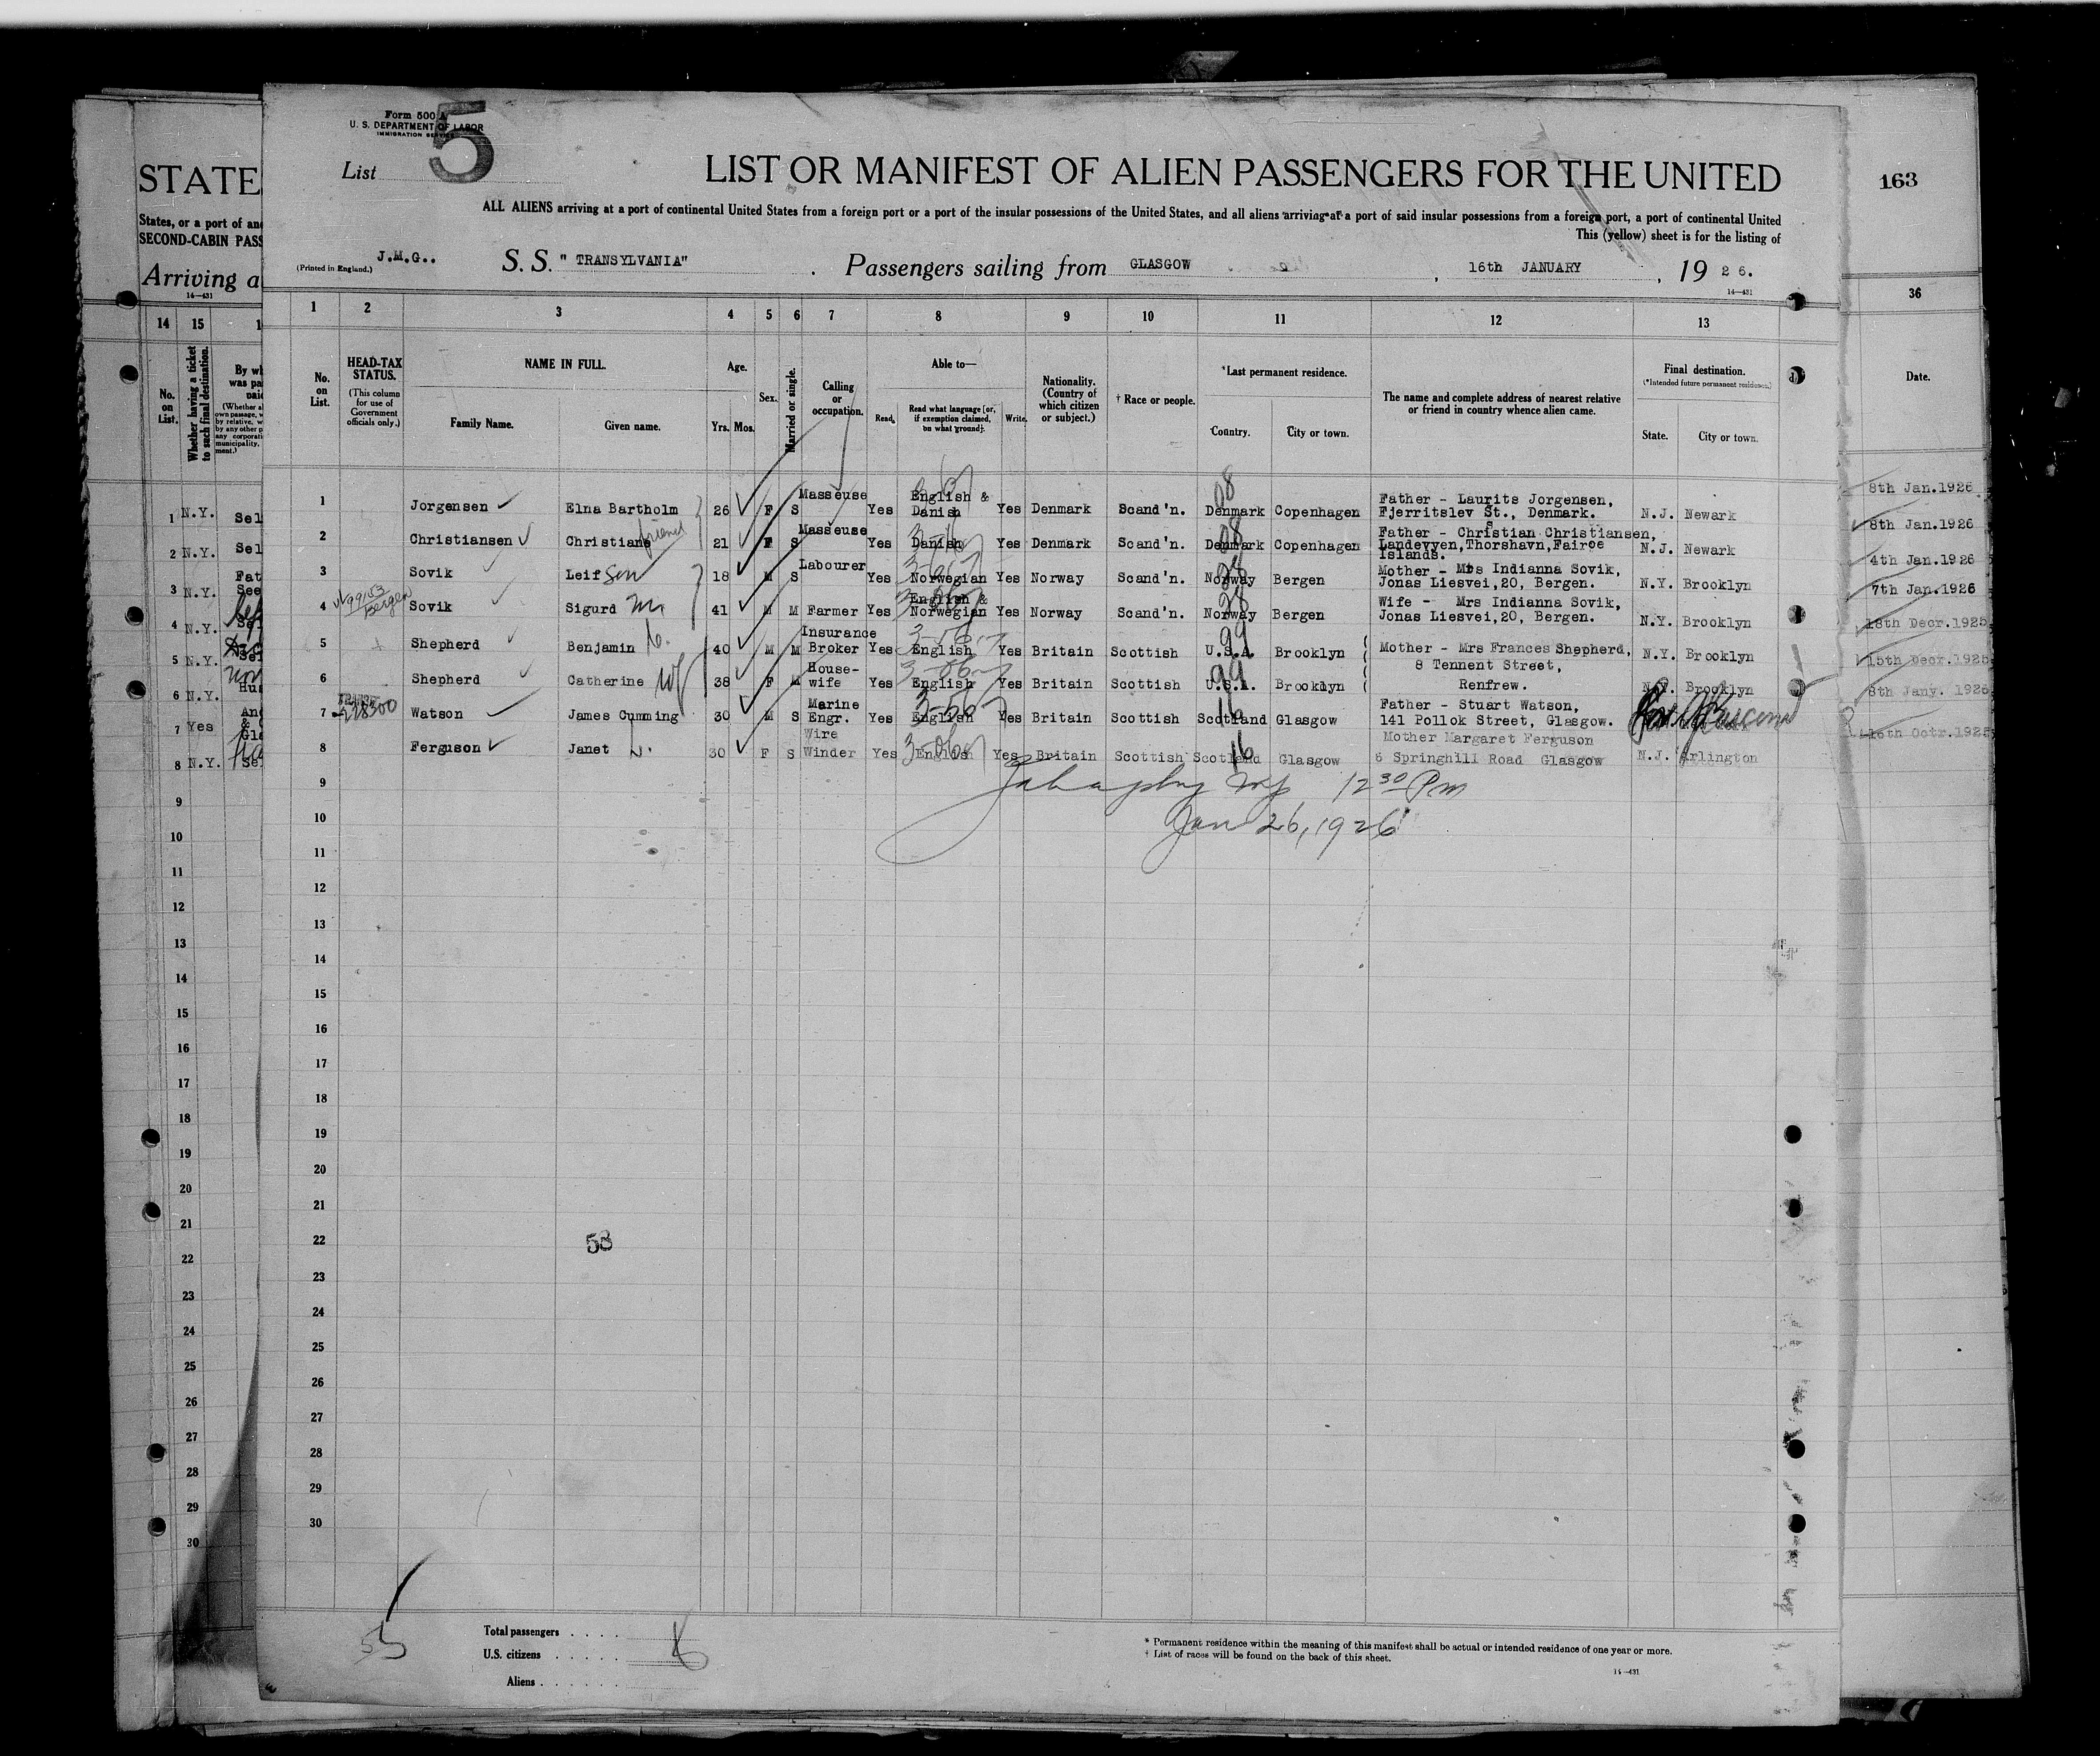 Form 500 A
U. S. DEPARTMENT OF LABOR
IMMIGRATION SERVICE
List 5
LIST OR MANIFEST OF ALIEN PASSENGERS FOR THE UNITED
ALL ALIENS arriving at a port of continental United States from a foreign port or a port of the insular possessions of the United States, and all aliens arriving at a port of said insular possessions from a foreign port, a port of continental United
This (yellow) sheet is for the listing of
J.M.G..
(Printed in England.)
S. S. " TRANSYLVANIA" . Passengers sailing from GLASGOW , 16th JANUARY , 19 2 6.
14—431
1 2 3 4 5 6 7 8 9 10 11 12 13
No. on List.
HEAD-TAX STATUS.
(This column for use of Government officials only.)
NAME IN FULL.
Family Name. Given name.
Age.
Yrs. Mos.
Sex.
Married or single.
Calling or occupation.
Able to—
Read. Read what language [or, if exemption claimed, on what ground]. Write.
Nationality. (Country of which citizen or subject.)
† Race or people.
*Last permanent residence.
Country. City or town.
The name and complete address of nearest relative or friend in country whence alien came.
Final destination.
(*Intended future permanent residence.)
State. City or town.
1 Jorgensen Elna Bartholm 26 F S Masseuse Yes English & Danish Yes Denmark Scand'n. Denmark Copenhagen Father - Laurits Jorgensen, Fjerritslev St., Denmark. N.J. Newark
2 Christiansen Christiane friend 21 F S Masseuse Yes Danish Yes Denmark Scand'n. Denmark Copenhagen Father - Christian Christiansen, Landevyen,Thorshavn,Fairoe Islands. N.J. Newark
3 Sovik Leif son 18 M S Labourer Yes Norwegian Yes Norway Scand'n. Norway Bergen Mother - Mrs Indianna Sovik, Jonas Liesvei,20, Bergen. N.Y. Brooklyn
4 Bergen Sovik Sigurd 41 M M Farmer Yes English & Norwegian Yes Norway Scand'n. Norway Bergen Wife - Mrs Indianna Sovik, Jonas Liesvei,20, Bergen. N.Y. Brooklyn
5 Shepherd Benjamin 40 M M Insurance Broker Yes English Yes Britain Scottish U.S.A. Brooklyn Mother - Mrs Frances Shepherd, N.Y. Brooklyn
6 Shepherd Catherine wf 38 F M House-wife Yes English Yes Britain Scottish U.S.A. Brooklyn 8 Tennent Street, Renfrew. N.Y. Brooklyn
7 Watson James Cumming 30 M S Marine Engr. Yes English Yes Britain Scottish Scotland Glasgow Father - Stuart Watson, 141 Pollok Street, Glasgow.
8 Ferguson Janet 30 F S Wire Winder Yes English Yes Britain Scottish Scotland Glasgow Mother Margaret Ferguson 6 Springhill Road Glasgow N.J. Arlington
12 30 Pm
Jan 26, 1926
9
10
11
12
13
14
15
16
17
18
19
20
21
22
53
23
24
25
26
27
28
29
30
55
Total passengers
U.S. citizens
Aliens
* Permanent residence within the meaning of this manifest shall be actual or intended residence of one year or more.
† List of races will be found on the back of this sheet.
14—431
STATE
States, or a port of an
SECOND-CABIN PASS
Arriving a
14—431
14 15 1
No. on List.
Whether having a ticket to such final destination.
1 N.Y. Sel
2 N.Y. Sel
3 N.Y.
4 N.Y.
5 N.Y.
6 N.Y.
7 Yes
8 N.Y.
9
10
11
12
13
14
15
16
17
18
19
20
21
22
23
24
25
26
27
28
29
30
163
36
Date.
8th Jan.1926
8th Jan.1926
4th Jan.1926
7th Jan.1926
18th Decr.1925
15th Decr.1925
8th Jany. 1926
16th Octr.1925